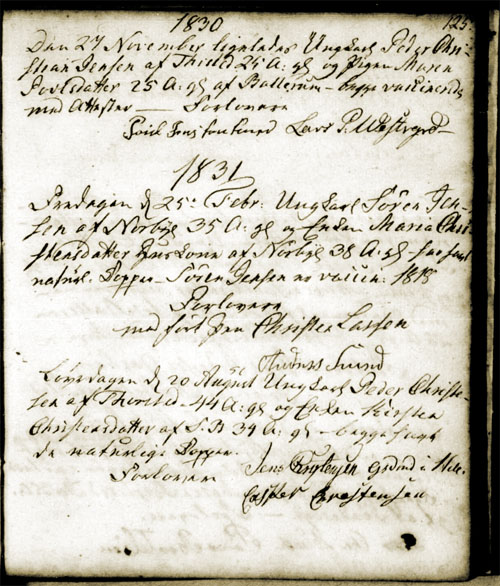 1830
125
Den 27 November Ungkarl Peder Chri-
stian Jensen af Thorsted 25 A: gl og Pigen Maren
Povlsdatter 25 A: gl af Ballerum - begge vaccinerede
med Attester — Forlovere
Lars P. Westergrd
1831
Fredagen d 25 Febr: Ungkarl Søren Jen-
sen af Norbye 35 A: gl og Enken Maria Chri-
stensdatter af Norbye 38 A: gl
naturl. Kopper - Søren Jensen er vaccin: 1818
Forlovere
med Christen Larsen
Anders
Løverdagen d 20 August Ungkarl Peder Christe-
sen af Thorsted - 44 A: gl og Enken Kirsten
Christensdatter af 34 A: gl - begge havt
de naturlige Kopper.
Forlovere Jens i
Christensen